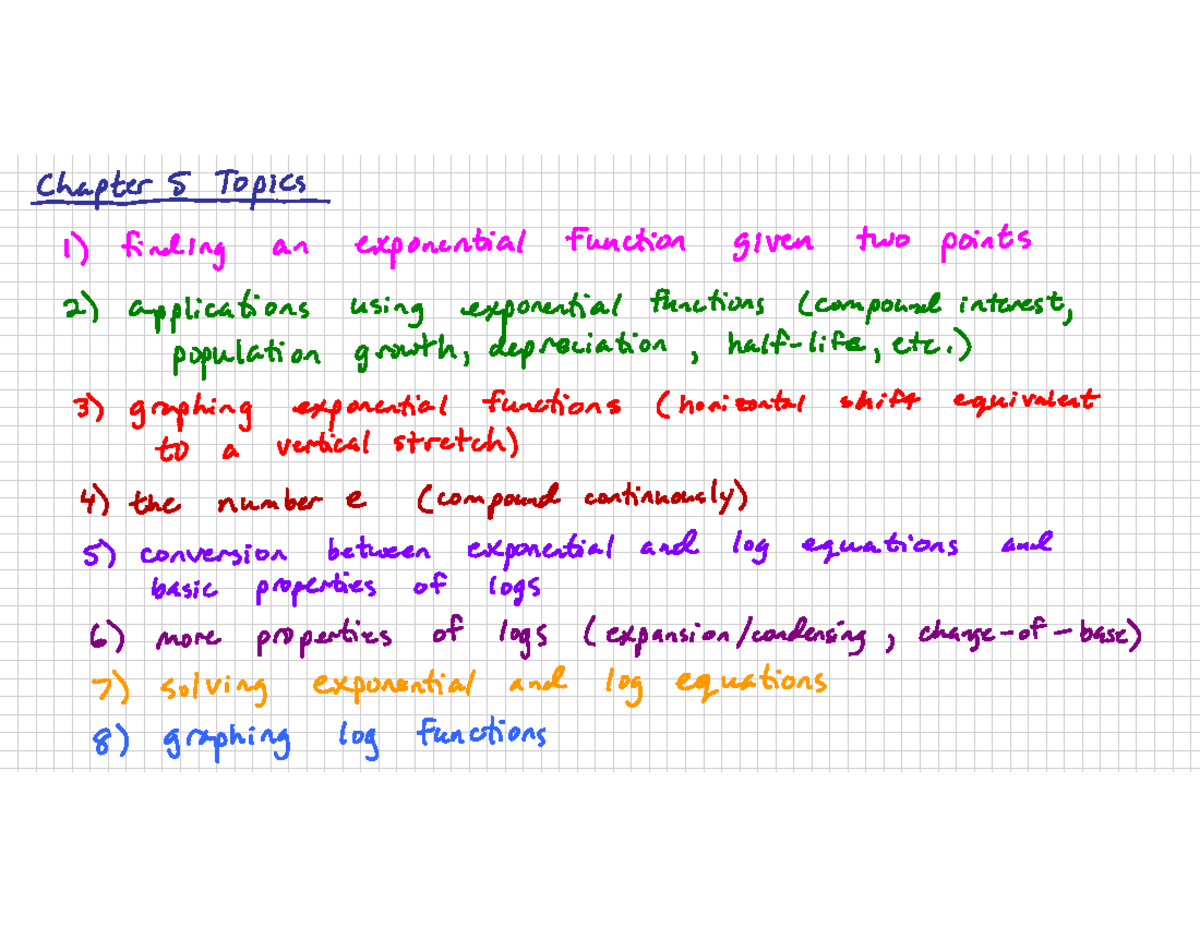 Chapter 5 Topics
1) finding an exponential function given two points
2) applications using exponential functions (compound interest,
population growth, depreciation, half-life, etc.)
3) graphing exponential functions (horizontal shift equivalent
to a vertical stretch)
4) the number e (compound continuously)
5) conversion between exponential and log equations and
basic properties of logs
6) more properties of logs (expansion/condensing, change-of-base)
7) solving exponential and log equations
8) graphing log functions